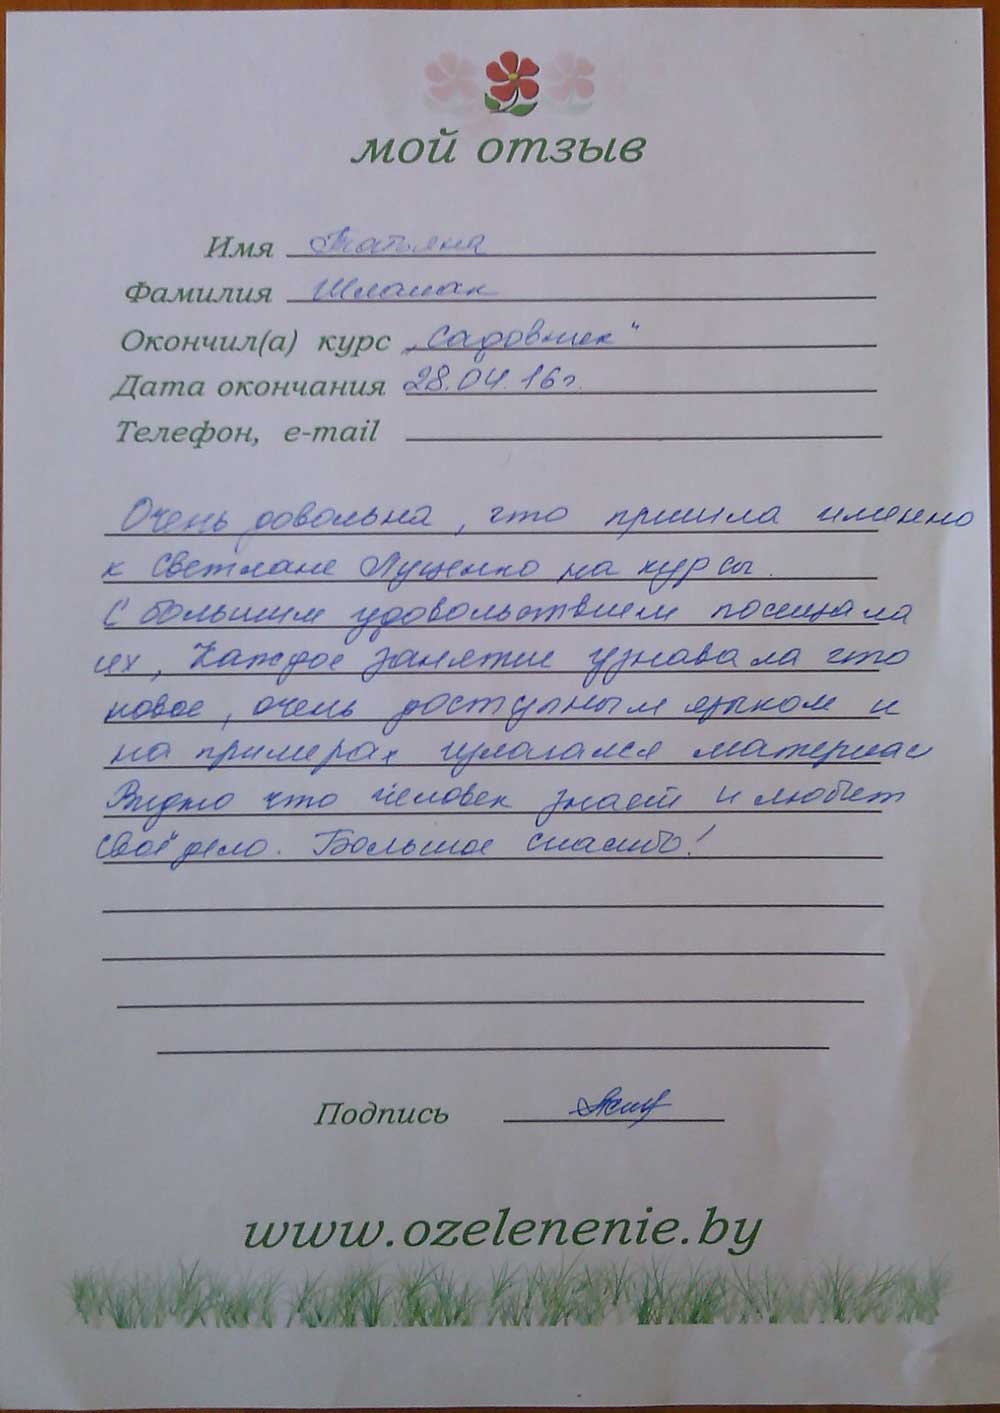 мой отзыв
Имя Татьяна
Фамилия
Окончил(а) курс „Садовник"
Дата окончания 28.04.16г.
Телефон, e-mail
Очень довольна, что пришла именно
к Светлане Луценко на курсы.
С большим удовольствием посещала
их, Каждое занятие узнавала что
новое, очень доступным языком и
на примерах излагался материал
Видно что человек знает и любит
своё дело. Большое спасибо!
Подпись
www.ozelenenie.by